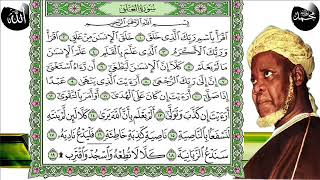 الله
محمد
سورة العلق
بسم الله الرحمن الرحيم
اقرأ باسم ربك الذي خلق ١ خلق الإنسن من علق ٢ اقرأ
وربك الأكرم ٣ الذي علم بالقلم ٤ علم الإنسن
ما لم يعلم ٥ كلا إن الإنسن ليطغى ٦ أن رءاه استغنى ٧
إن إلى ربك الرجعى ٨ أرءيت الذي ينهى ٩ عبدا
إذا صلى ١٠ أرءيت إن كان على الهدى ١١ أو أمر بالتقوى ١٢
أرءيت إن كذب وتولى ١٣ ألم يعلم بأن الله يرى ١٤ كلا لئن لم ينته
لنسفعا بالناصية ١٥ ناصية كذبة خاطئة ١٦ فليدع ناديه ١٧
سندع الزبانية ١٨ كلا لا تطعه واسجد واقترب ۩ ١٩